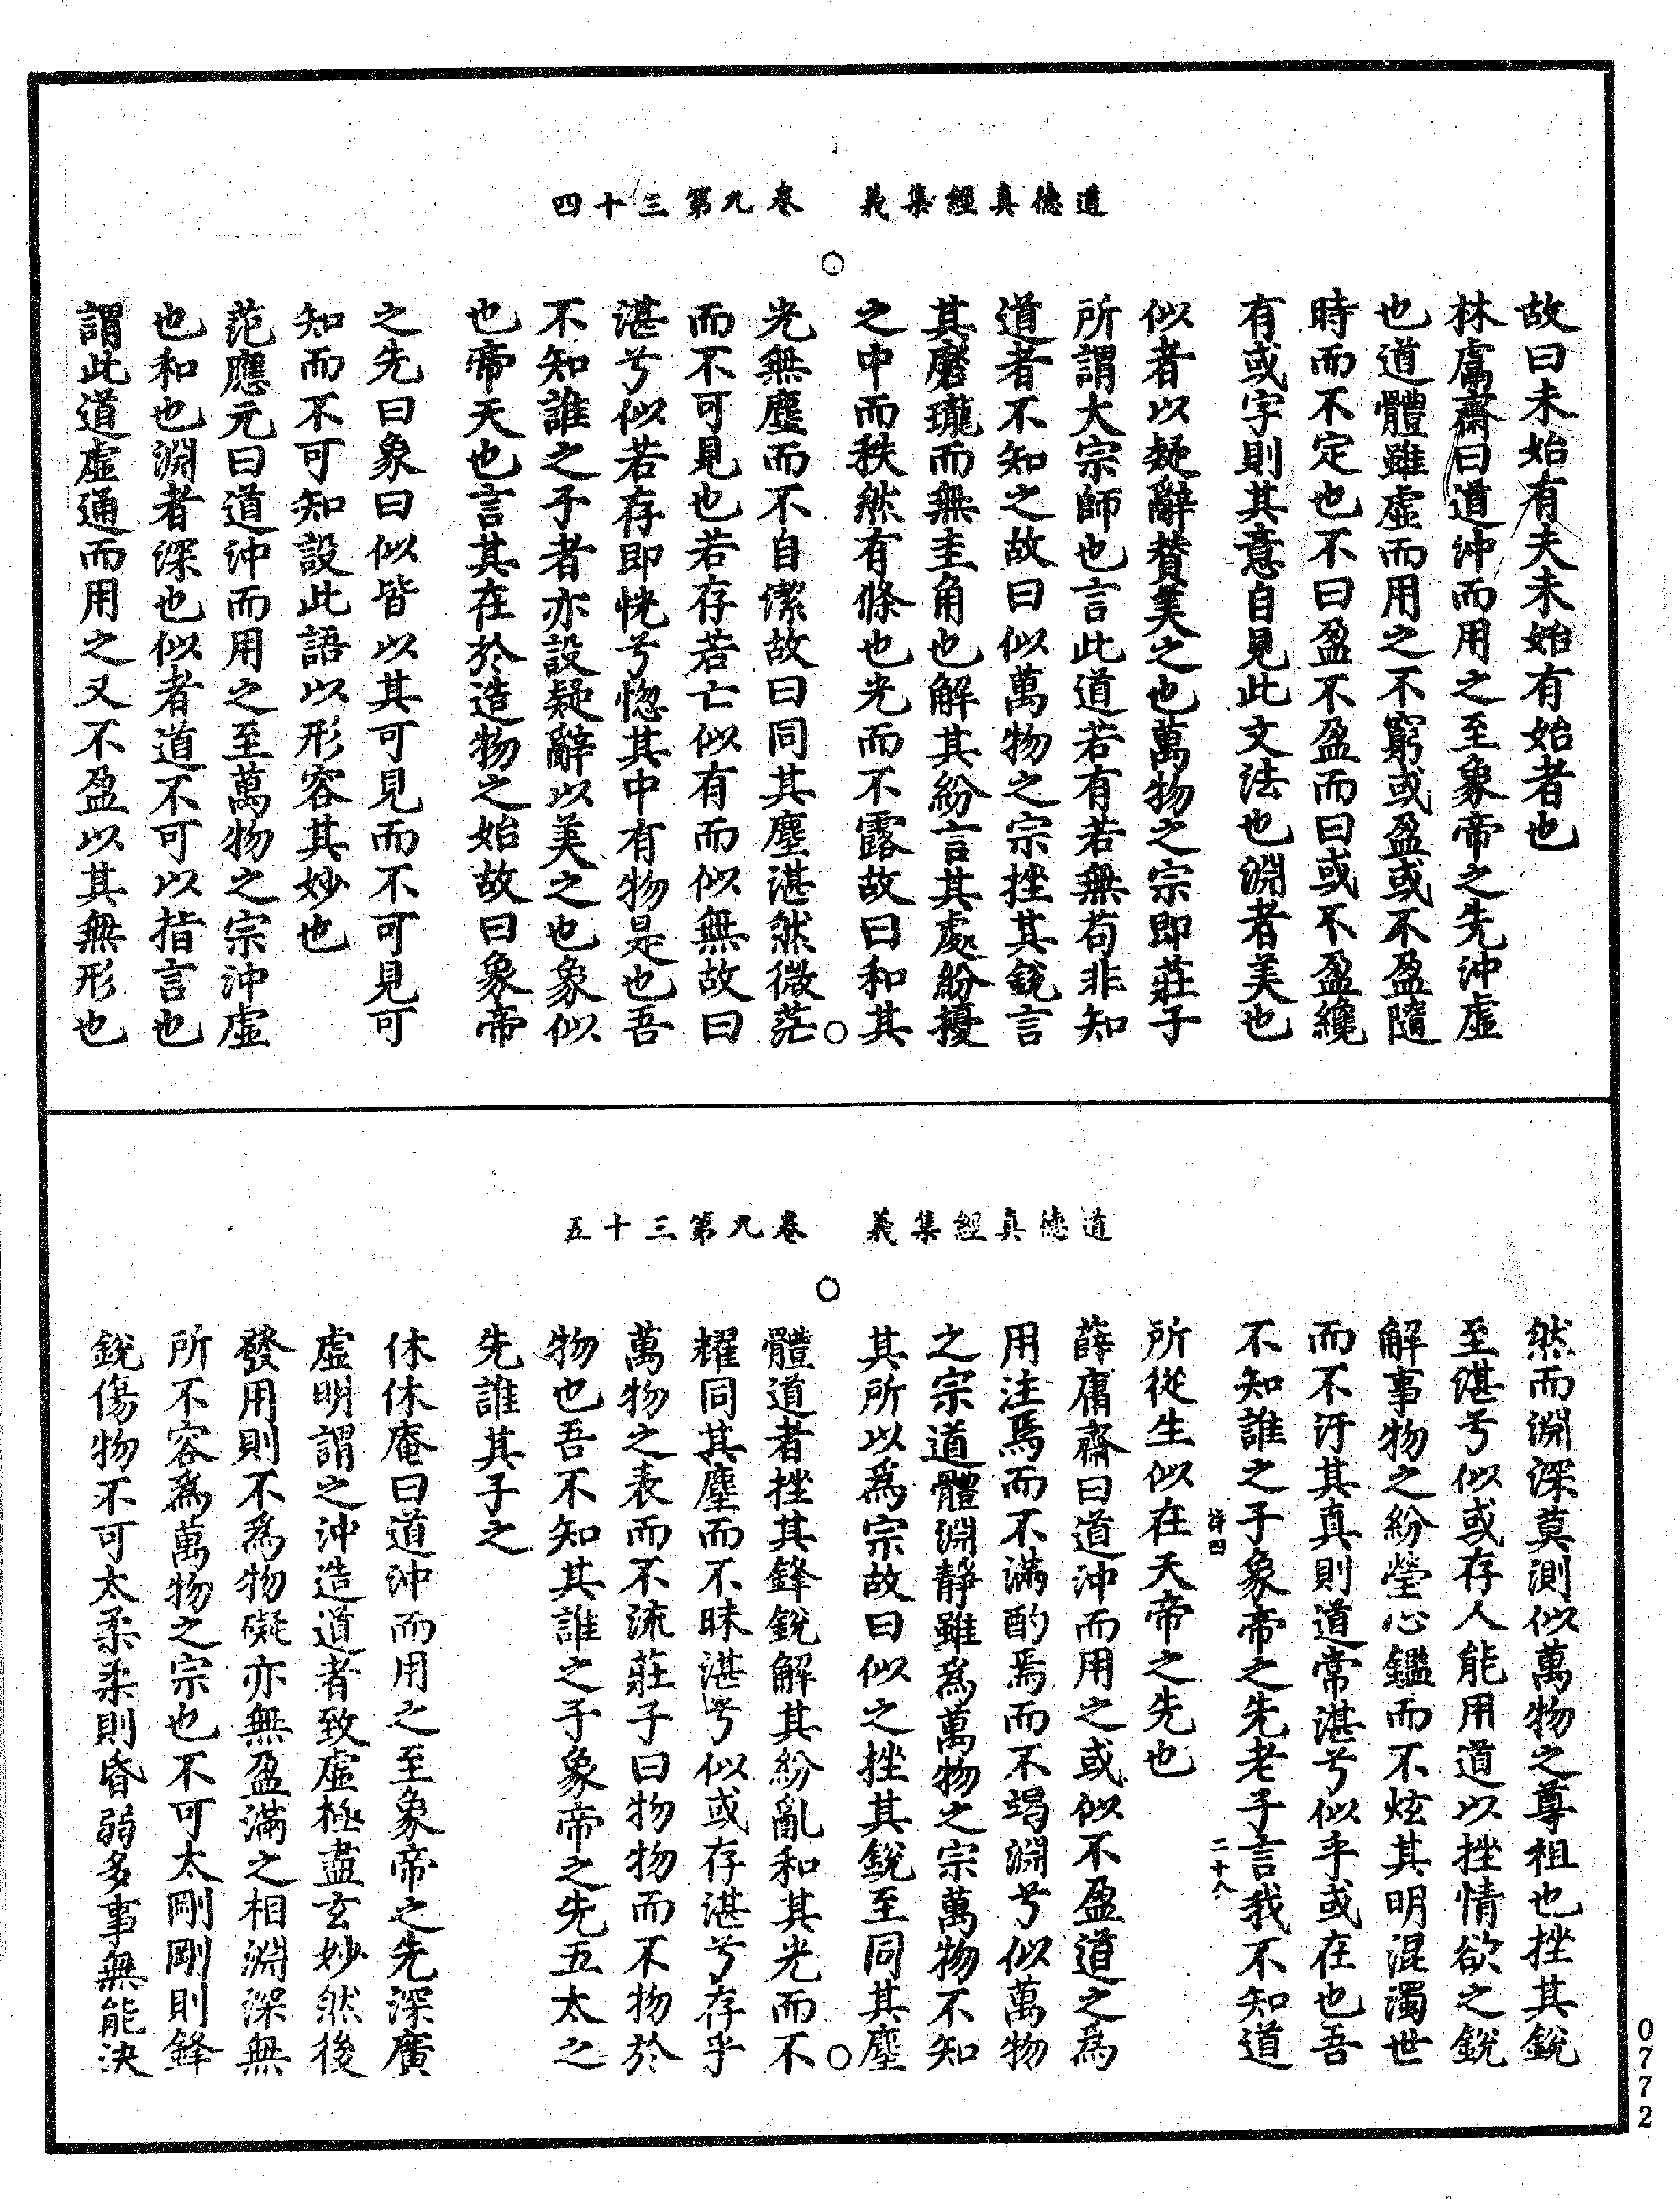 道德真經集義　卷九第三十四
故曰未始有夫未始有始者也
林鬳齋曰道沖而用之至象帝之先沖虛
也道體雖虛而用之不窮或盈或不盈隨
時而不定也不曰盈不盈而曰或不盈纔
有或字則其意自見此文法也淵者美也
似者以疑辭賛美之也萬物之宗即莊子
所謂大宗師也言此道若有若無苟非知
道者不知之故曰似萬物之宗挫其銳言
其磨瓏而無圭角也解其紛言其處紛擾
之中而秩然有條也光而不露故曰和其
光無塵而不自潔故曰同其塵湛然微茫
而不可見也若存若亡似有而似無故曰
湛兮似若存即恍兮惚其中有物是也吾
不知誰之子者亦設疑辭以美之也象似
也帝天也言其在於造物之始故曰象帝
之先曰象曰似皆以其可見而不可見可
知而不可知設此語以形容其妙也
范應元曰道沖而用之至萬物之宗沖虛
也和也淵者深也似者道不可以指言也
謂此道虛通而用之又不盈以其無形也
道德真經集義　卷九第三十五
然而淵深莫測似萬物之尊祖也挫其銳
至湛兮似或存人能用道以挫情欲之銳
解事物之紛瑩心鑑而不炫其明混濁世
而不汙其真則道常湛兮似乎或在也吾
不知誰之子象帝之先老子言我不知道
詩四　二十八
所從生似在天帝之先也
薛庸齋曰道沖而用之或似不盈道之為
用注焉而不滿酌焉而不竭淵兮似萬物
之宗道體淵靜雖為萬物之宗萬物不知
其所以為宗故曰似之挫其銳至同其塵
體道者挫其鋒銳解其紛亂和其光而不
耀同其塵而不昧湛兮似或存湛兮存乎
萬物之表而不流莊子曰物物而不物於
物也吾不知其誰之子象帝之先五太之
先誰其子之
休休庵曰道沖而用之至象帝之先深廣
虛明謂之沖造道者致虛極盡玄妙然後
發用則不為物礙亦無盈滿之相淵深無
所不容為萬物之宗也不可太剛剛則鋒
銳傷物不可太柔柔則昏弱多事無能決
0772